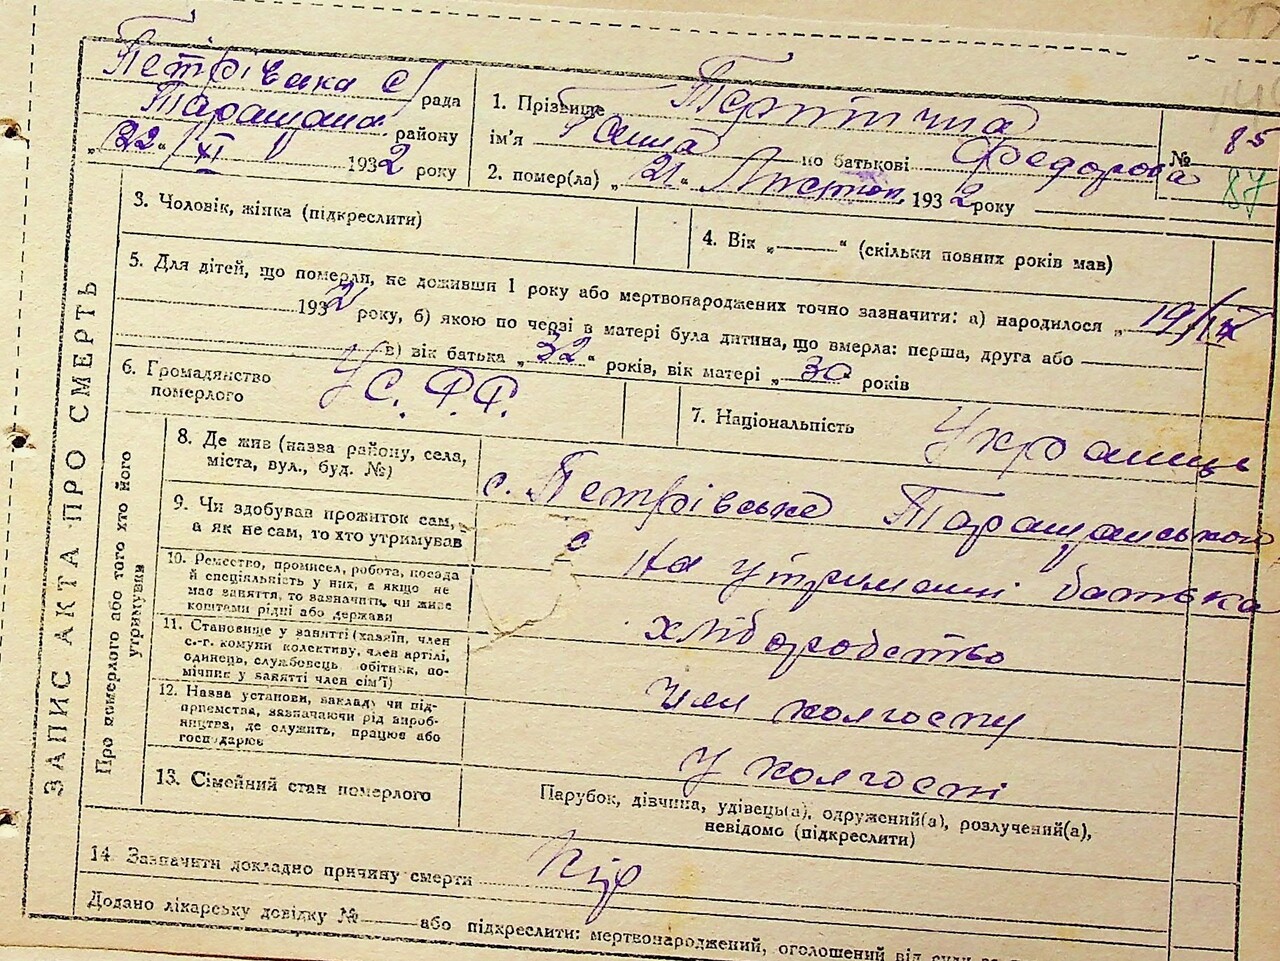 Петрівська с/рада
Таращан. району
„22“ XI 1932 року
1. Прізвище
ім'я Ганна по батькові Федорова
№ 85
87
2. помер(ла) „21“ Листоп. 1932 року
3. Чоловік, жінка (підкреслити)
4. Вік „———“ (скільки повних років мав)
5. Для дітей, що померли, не доживши 1 року або мертвонароджених точно зазначити: а) народилося „19/IX
1932 року, б) якою по черзі в матері була дитина, що вмерла: перша, друга або
в) вік батька „32“ років, вік матері „30 років
6. Громадянство
померлого
УС.Р.Р.
7. Національність
Українець
ЗАПИС АКТА ПРО СМЕРТЬ
Про померлого або того хто його
утримував
8. Де жив (назва району, села,
міста, вул., буд. №)
с. Петрівське Таращанського
9. Чи здобував прожиток сам,
а як не сам, то хто утримував
на утриманні батька
10. Ремество, промисел, робота, посада
й спеціяльність у них, а якщо не
має заняття, то зазначить, чи живе
коштами рідні або держави
хліборобство
11. Становище у занятті (хазяїн, член
с.-г. комуни колективу, член артілі,
одинець, службовець обітник, по-
мічник у занятті член сім'ї)
член колгоспу
12. Назва установи, закладу чи під-
приємства, зазначаючи рід вироб-
ництва, де служить, працює або
господарює
у колгоспі
13. Сімейний стан померлого
Парубок, дівчина, удівець(а), одружений(а), розлучений(а),
невідомо (підкреслити)
14. Зазначити докладно причину смерти Кір
Додано лікарську довідку №——— або підкреслити: мертвонароджений, оголошений від